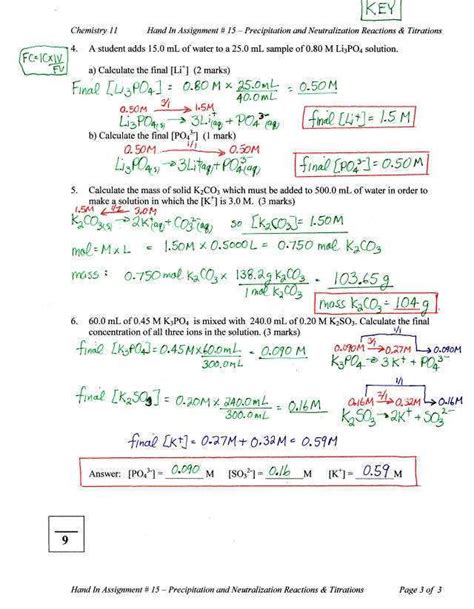 KEY
Chemistry 11 Hand In Assignment # 15 – Precipitation and Neutralization Reactions & Titrations
FC=IC×IV/FV
4. A student adds 15.0 mL of water to a 25.0 mL sample of 0.80 M Li₃PO₄ solution.
a) Calculate the final [Li⁺] (2 marks)
Final [Li₃PO₄] = 0.80 M × 25.0mL/40.0mL = 0.50M
0.50M 3/1 → 1.5M
Li₃PO₄(s) → 3Li⁺(aq) + PO₄³⁻(aq)
final [Li⁺] = 1.5 M
b) Calculate the final [PO₄³⁻] (1 mark)
0.50M 1/1 → 0.50M
Li₃PO₄(s) → 3Li⁺(aq) + PO₄³⁻(aq)
final [PO₄³⁻] = 0.50 M
5. Calculate the mass of solid K₂CO₃ which must be added to 500.0 mL of water in order to
make a solution in which the [K⁺] is 3.0 M. (3 marks)
1.5M ← 1/2 3.0M
K₂CO₃(s) → 2K⁺(aq) + CO₃²⁻(aq) so [K₂CO₃] = 1.50M
mol = M × L = 1.50M × 0.5000L = 0.750 mol K₂CO₃
mass: 0.750 mol K₂CO₃ × 138.2g K₂CO₃/1 mol K₂CO₃ = 103.65g
mass K₂CO₃ = 104 g
6. 60.0 mL of 0.45 M K₃PO₄ is mixed with 240.0 mL of 0.20 M K₂SO₃. Calculate the final
concentration of all three ions in the solution. (3 marks)
1/1
final [K₃PO₄] = 0.45M × 60.0mL/300.0mL = 0.090 M
0.090M 3/1 → 0.27M → 0.090M
K₃PO₄ → 3K⁺ + PO₄³⁻
1/1
final [K₂SO₃] = 0.20M × 240.0mL/300.0mL = 0.16M
0.16M 2/1 → 0.32M → 0.16M
K₂SO₃ → 2K⁺ + SO₃²⁻
final [K⁺] = 0.27M + 0.32M = 0.59M
Answer: [PO₄³⁻] = 0.090 M [SO₃²⁻] = 0.16 M [K⁺] = 0.59 M
9
Hand In Assignment # 15 – Precipitation and Neutralization Reactions & Titrations Page 3 of 3